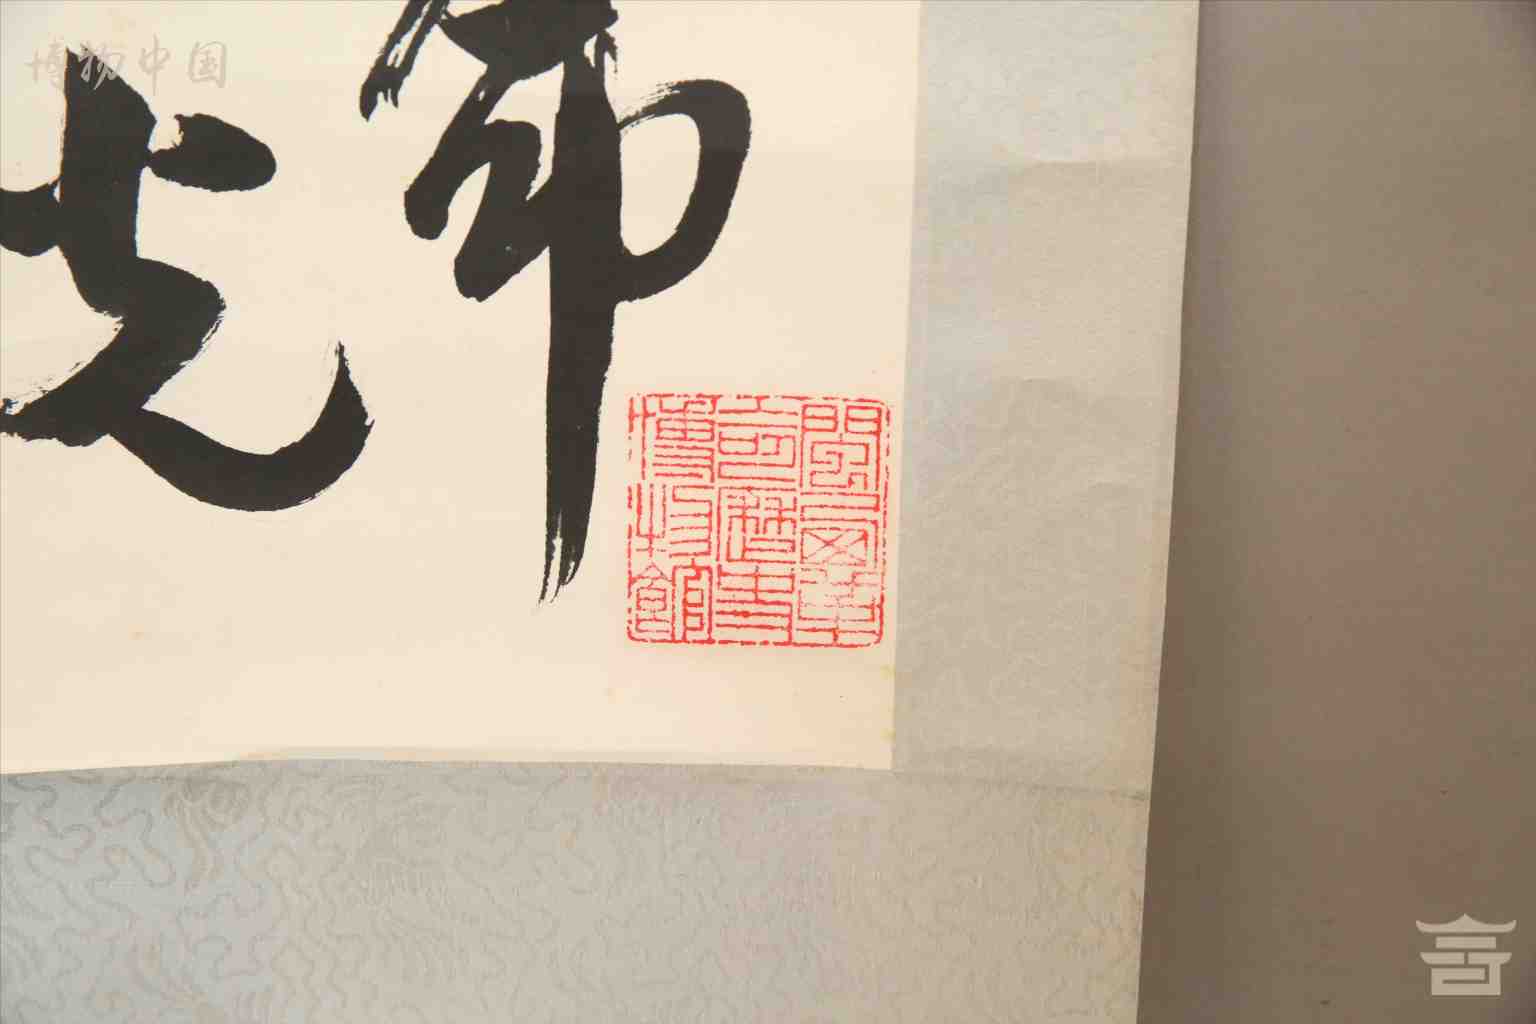 博物中国
閩西革
命歷史
博物館